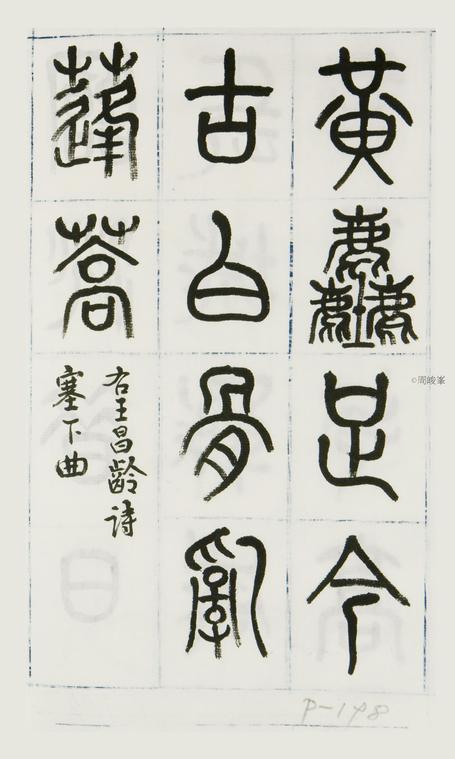 黃塵足今
古白骨亂
蓬蒿
右王昌齡詩
塞下曲
©周峻峯
P-148